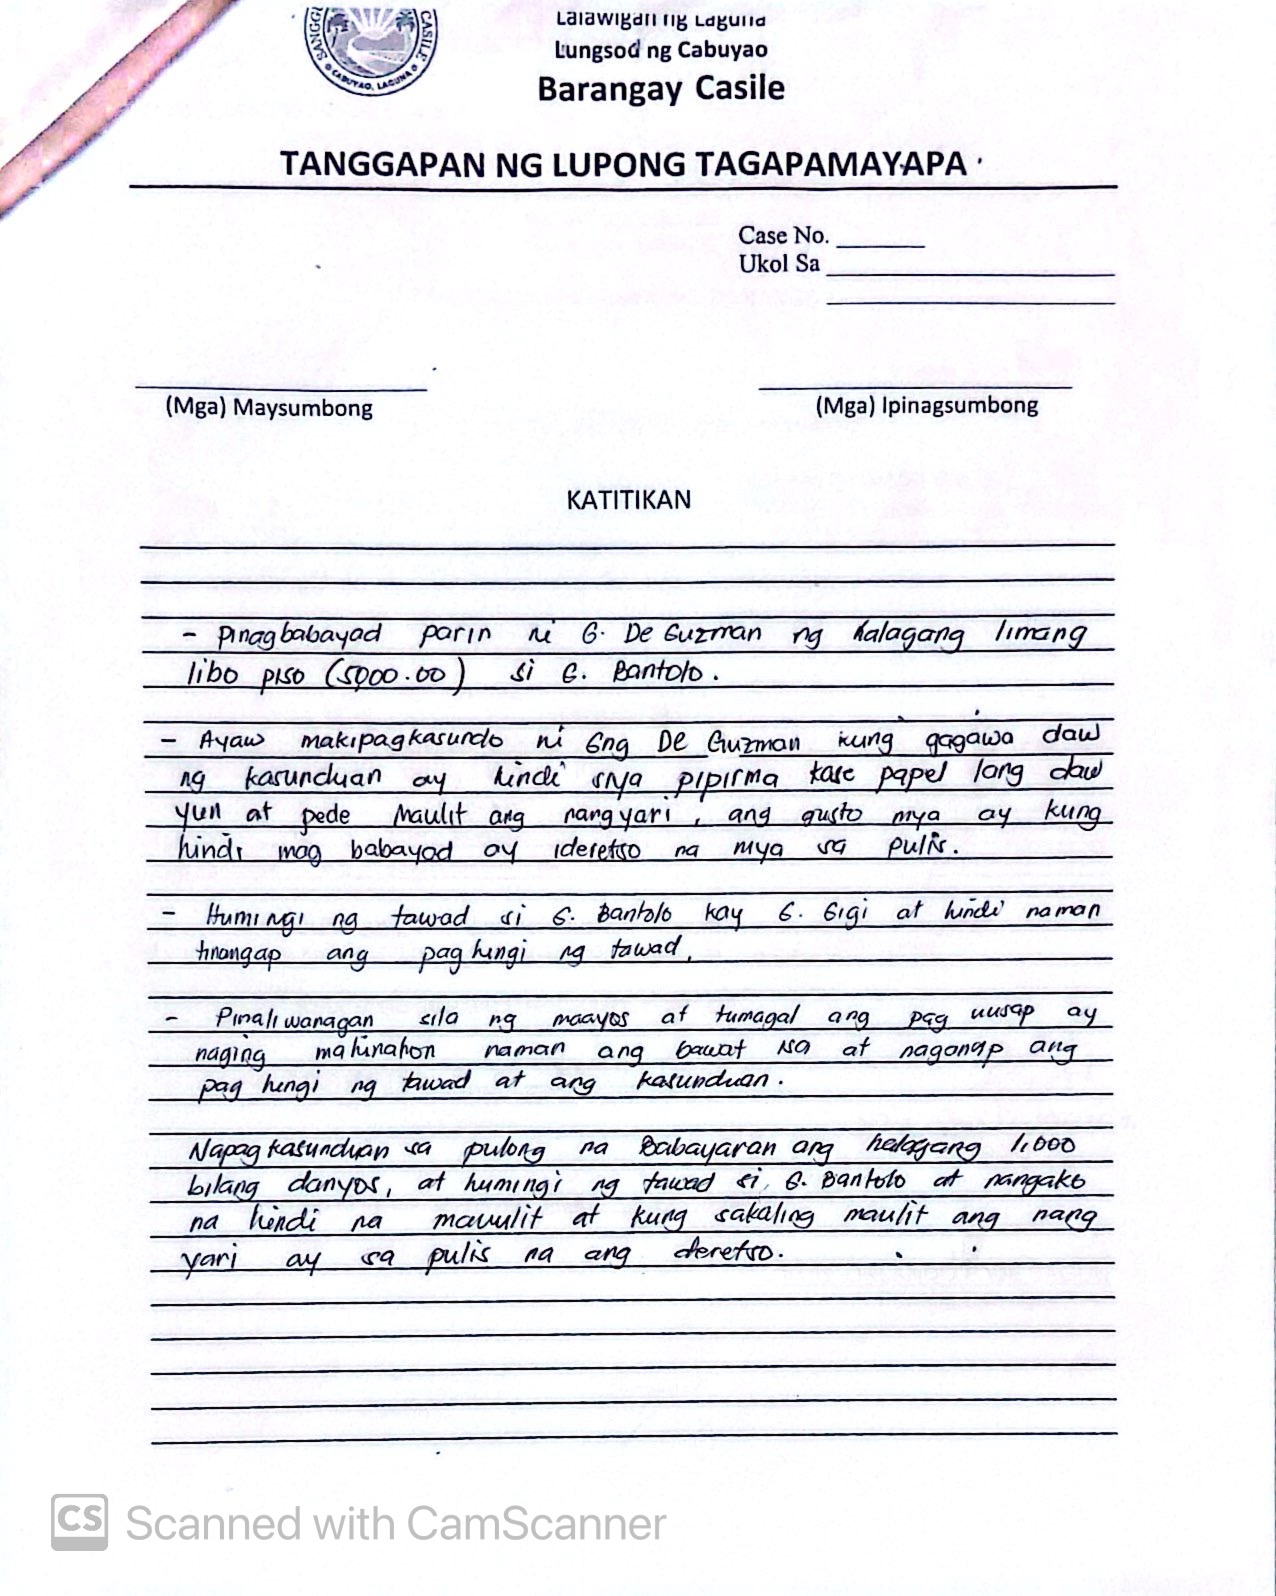 SANGGU CASILE
CABUYAO, LAGUNA
Lalawigan ng Laguna
Lungsod ng Cabuyao
Barangay Casile
TANGGAPAN NG LUPONG TAGAPAMAYAPA
Case No. ________
Ukol Sa ________
(Mga) Maysumbong
(Mga) Ipinagsumbong
KATITIKAN
- Pinagbabayad parin ni G. De Guzman ng halagang limang
libo piso (5000.00) si G. Bantolo.
- Ayaw makipagkasundo ni Gng De Guzman kung gagawa daw
ng kasunduan ay hindi siya pipirma kase papel lang daw
yun at pede Maulit ang nangyari, ang gusto nya ay kung
hindi mag babayad ay ideretso na nya sa pulis.
- Humingi ng tawad si G. Bantolo kay G. Gigi at hindi naman
tinangap ang pag hingi ng tawad.
- Pinaliwanagan sila ng maayos at tumagal ang pag uusap ay
naging mahinahon naman ang bawat isa at naganap ang
pag hingi ng tawad at ang kasunduan.
Napagkasunduan sa pulong na Babayaran ang halagang 1,000
bilang danyos, at humingi ng tawad si G. Bantolo at nangako
na hindi na mauulit at kung sakaling maulit ang nang
yari ay sa pulis na ang deretso.
CS Scanned with CamScanner